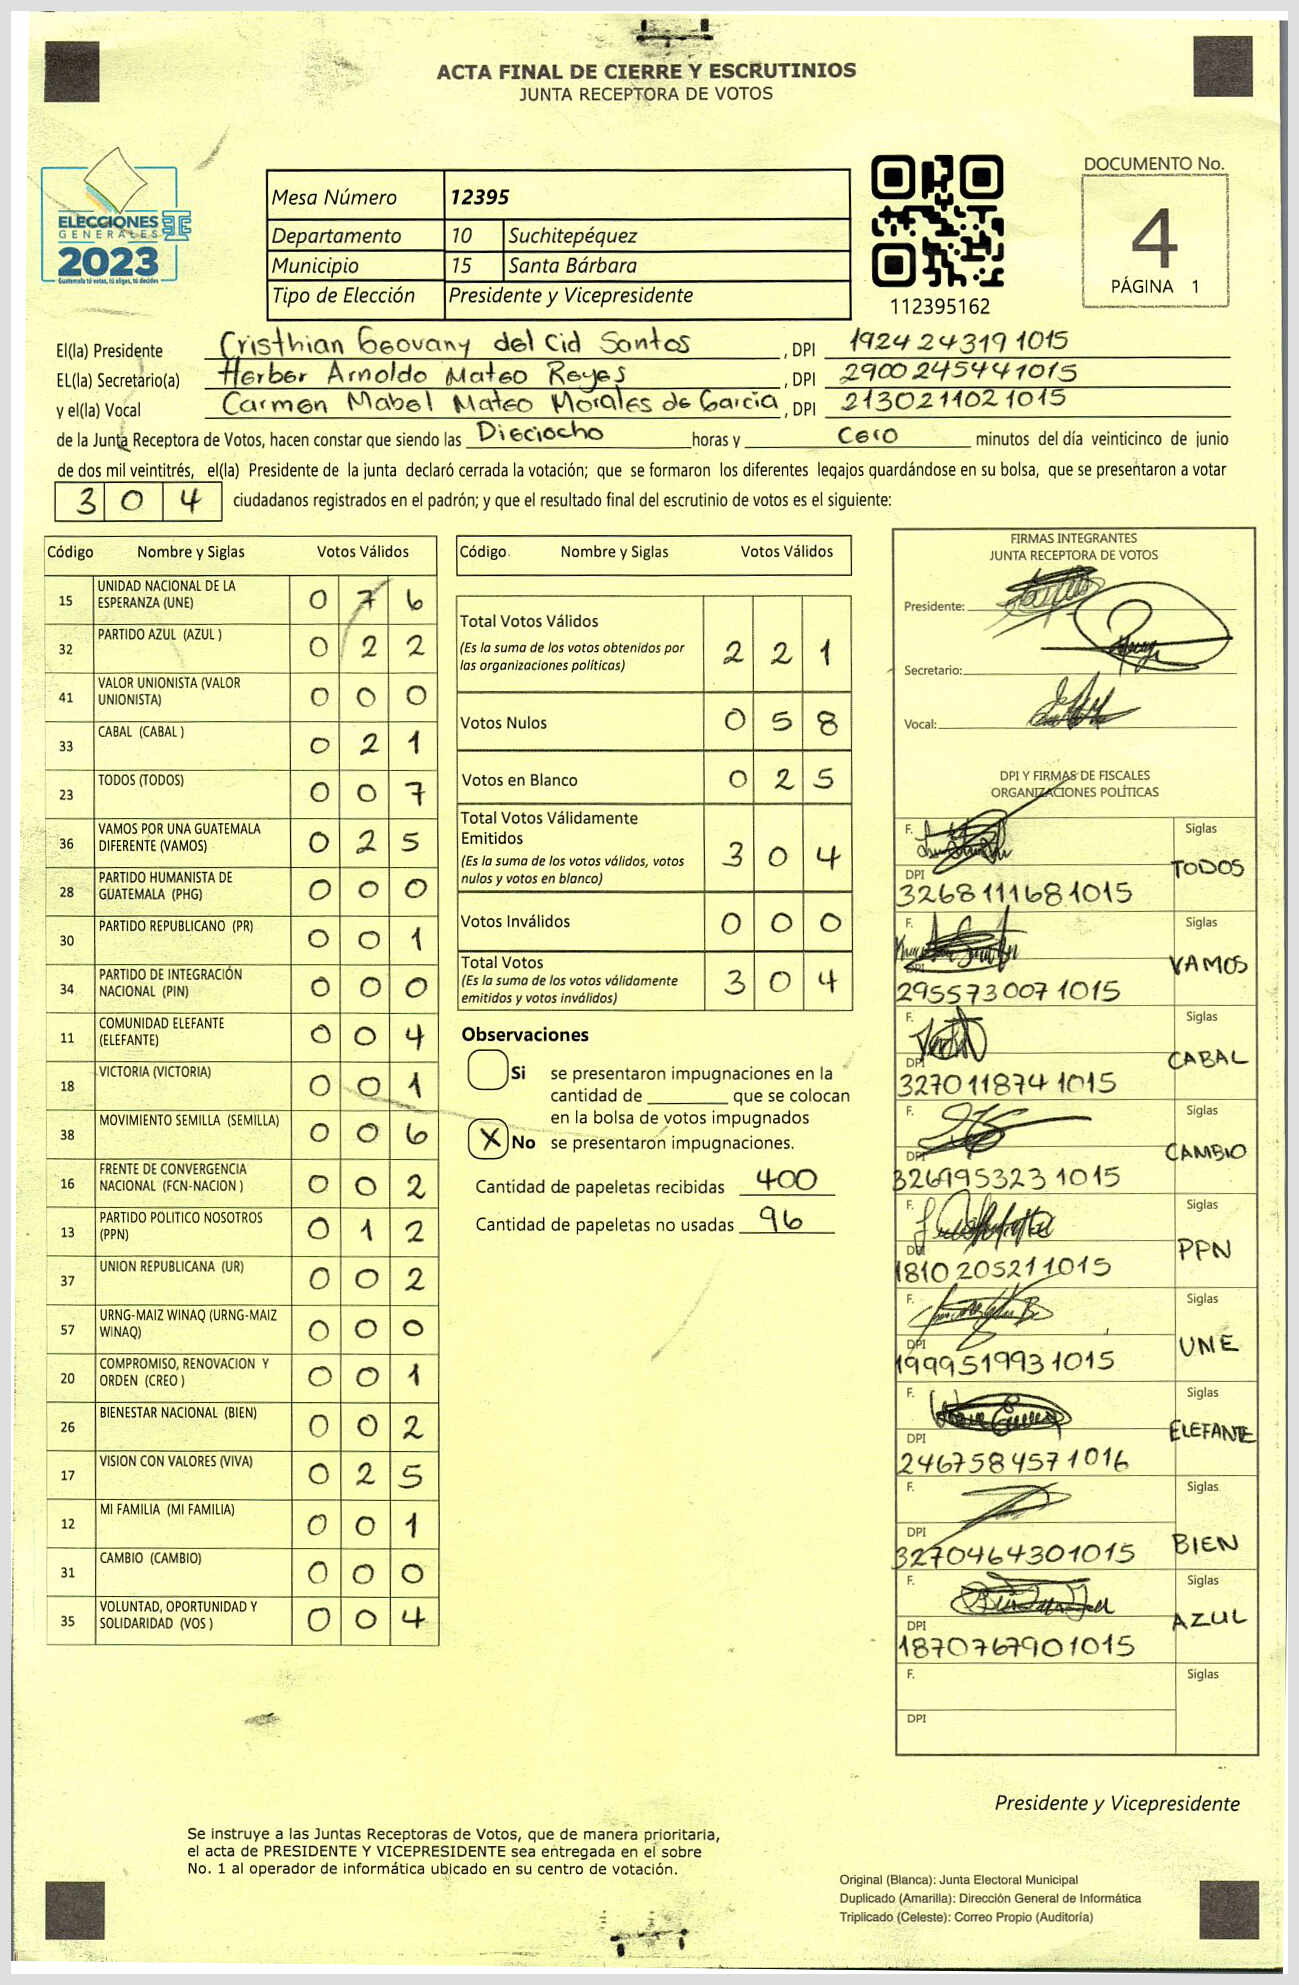 ACTA FINAL DE CIERRE Y ESCRUTINIOS
JUNTA RECEPTORA DE VOTOS
ELECCIONES
GENERALES
2023
Guatemala tú votas, tú eliges, tú decides
Mesa Número 12395
Departamento 10 Suchitepéquez
Municipio 15 Santa Bárbara
Tipo de Elección Presidente y Vicepresidente
112395162
DOCUMENTO No.
4
PÁGINA 1
El(la) Presidente Cristhian Geovany del Cid Santos , DPI 1924 24319 1015
EL(la) Secretario(a) Herber Arnoldo Mateo Reyes , DPI 2900245441015
y el(la) Vocal Carmen Mabel Mateo Morales de Garcia , DPI 2130211021015
de la Junta Receptora de Votos, hacen constar que siendo las Dieciocho horas y Cero minutos del día veinticinco de junio
de dos mil veintitrés, el(la) Presidente de la junta declaró cerrada la votación; que se formaron los diferentes legajos guardándose en su bolsa, que se presentaron a votar
3 0 4 ciudadanos registrados en el padrón; y que el resultado final del escrutinio de votos es el siguiente:
Código Nombre y Siglas Votos Válidos
15 UNIDAD NACIONAL DE LA ESPERANZA (UNE) 0 7 6
32 PARTIDO AZUL (AZUL ) 0 2 2
41 VALOR UNIONISTA (VALOR UNIONISTA) 0 0 0
33 CABAL (CABAL ) 0 2 1
23 TODOS (TODOS) 0 0 7
36 VAMOS POR UNA GUATEMALA DIFERENTE (VAMOS) 0 2 5
28 PARTIDO HUMANISTA DE GUATEMALA (PHG) 0 0 0
30 PARTIDO REPUBLICANO (PR) 0 0 1
34 PARTIDO DE INTEGRACIÓN NACIONAL (PIN) 0 0 0
11 COMUNIDAD ELEFANTE (ELEFANTE) 0 0 4
18 VICTORIA (VICTORIA) 0 0 1
38 MOVIMIENTO SEMILLA (SEMILLA) 0 0 6
16 FRENTE DE CONVERGENCIA NACIONAL (FCN-NACION ) 0 0 2
13 PARTIDO POLITICO NOSOTROS (PPN) 0 1 2
37 UNION REPUBLICANA (UR) 0 0 2
57 URNG-MAIZ WINAQ (URNG-MAIZ WINAQ) 0 0 0
20 COMPROMISO, RENOVACION Y ORDEN (CREO ) 0 0 1
26 BIENESTAR NACIONAL (BIEN) 0 0 2
17 VISION CON VALORES (VIVA) 0 2 5
12 MI FAMILIA (MI FAMILIA) 0 0 1
31 CAMBIO (CAMBIO) 0 0 0
35 VOLUNTAD, OPORTUNIDAD Y SOLIDARIDAD (VOS ) 0 0 4
Código Nombre y Siglas Votos Válidos
Total Votos Válidos
(Es la suma de los votos obtenidos por las organizaciones políticas) 2 2 1
Votos Nulos 0 5 8
Votos en Blanco 0 2 5
Total Votos Válidamente Emitidos
(Es la suma de los votos válidos, votos nulos y votos en blanco) 3 0 4
Votos Inválidos 0 0 0
Total Votos
(Es la suma de los votos válidamente emitidos y votos inválidos) 3 0 4
Observaciones
Si se presentaron impugnaciones en la
cantidad de ________ que se colocan
en la bolsa de votos impugnados
X No se presentaron impugnaciones.
Cantidad de papeletas recibidas 400
Cantidad de papeletas no usadas 96
FIRMAS INTEGRANTES
JUNTA RECEPTORA DE VOTOS
Presidente:
Secretario:
Vocal:
DPI Y FIRMAS DE FISCALES
ORGANIZACIONES POLÍTICAS
F. Siglas
DPI TODOS
3268111681015
F. Siglas
DPI VAMOS
2955730071015
F. Siglas
DPI CABAL
3270118741015
F. Siglas
DPI CAMBIO
3269953231015
F. Siglas
DPI PPN
1810205211015
F. Siglas
DPI UNE
1999519931015
F. Siglas
DPI ELEFANTE
2467584571016
F. Siglas
DPI BIEN
3270464301015
F. Siglas
DPI AZUL
1870767901015
F. Siglas
DPI
Presidente y Vicepresidente
Se instruye a las Juntas Receptoras de Votos, que de manera prioritaria,
el acta de PRESIDENTE Y VICEPRESIDENTE sea entregada en el sobre
No. 1 al operador de informática ubicado en su centro de votación.
Original (Blanca): Junta Electoral Municipal
Duplicado (Amarilla): Dirección General de Informática
Triplicado (Celeste): Correo Propio (Auditoría)